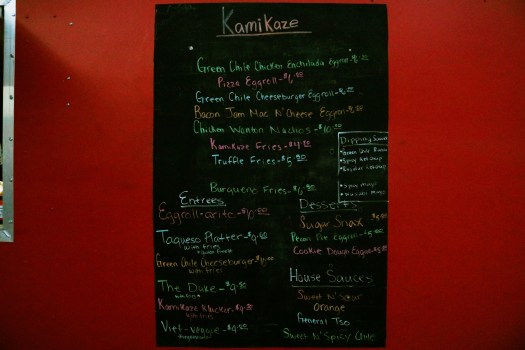 Kamikaze
Green Chile Chicken Enchilada Eggroll-$6.00
Pizza Eggroll-$6.00
Green Chile Cheeseburger Eggroll-$6.00
Bacon Jam Mac N' Cheese Eggroll-$6.00
Chicken Wonton Nachos-$10.00
Kamikaze Fries-$4.00
Truffle Fries-$5.00
Burqueno Fries-$6.00
Dipping Sauces
Green Chile Ranch
Spicy Ketchup
Regular Ketchup
Spicy Mayo
Mayo
Entrees
Eggroll-arito-$10.00
Taqueso Platter-$9.00
with fries
Green Chile Cheeseburger-$10.00
with fries
The Duke-$9.00
Kamikaze Klucker-$9.00
with fries
Viet-veggie-$9.00
Desserts
Sugar Snax-$5.00
Pecan Pie Eggroll-$5.00
Cookie Dough Eggroll-$5.00
House Sauces
Sweet N' Sour
Orange
General Tso
Sweet N' Spicy Chile